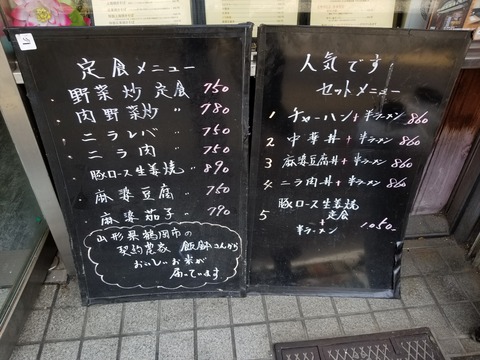 91
定食メニュー
野菜炒 定食 750
肉野菜炒 〃 780
ニラレバ 〃 750
ニラ肉 〃 750
豚ロース生姜焼 〃 890
麻婆豆腐 〃 750
麻婆茄子 〃 790
山形県鶴岡市の
契約農家 飯鉢さんから
おいしいお米が
届っています
人気です
セットメニュー
1 チャーハン+半ラーメン 860
2 中華丼+半ラーメン 860
3 麻婆豆腐丼+半ラーメン 860
4 ニラ肉丼+半ラーメン 860
豚ロース生姜焼
5 定食
+
半ラーメン 1,050-